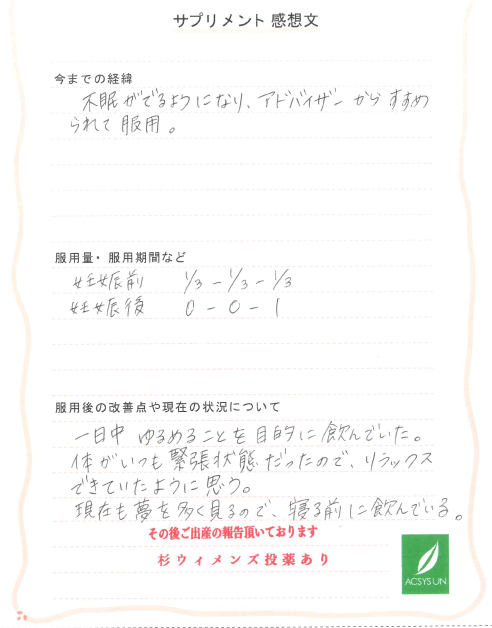 サプリメント 感想文
今までの経緯
不眠がでるようになり、アドバイザーからすすめ
られて服用。
服用量・服用期間など
妊娠前 1/3 - 1/3 - 1/3
妊娠後 0 - 0 - 1
服用後の改善点や現在の状況について
一日中 ゆるめることを目的に飲んでいた。
体がいつも緊張状態だったので、リラックス
できていたように思う。
現在も夢を多く見るので、寝る前に飲んでいる。
その後ご出産の報告頂いております
杉ウィメンズ投薬あり
ACSYS UN